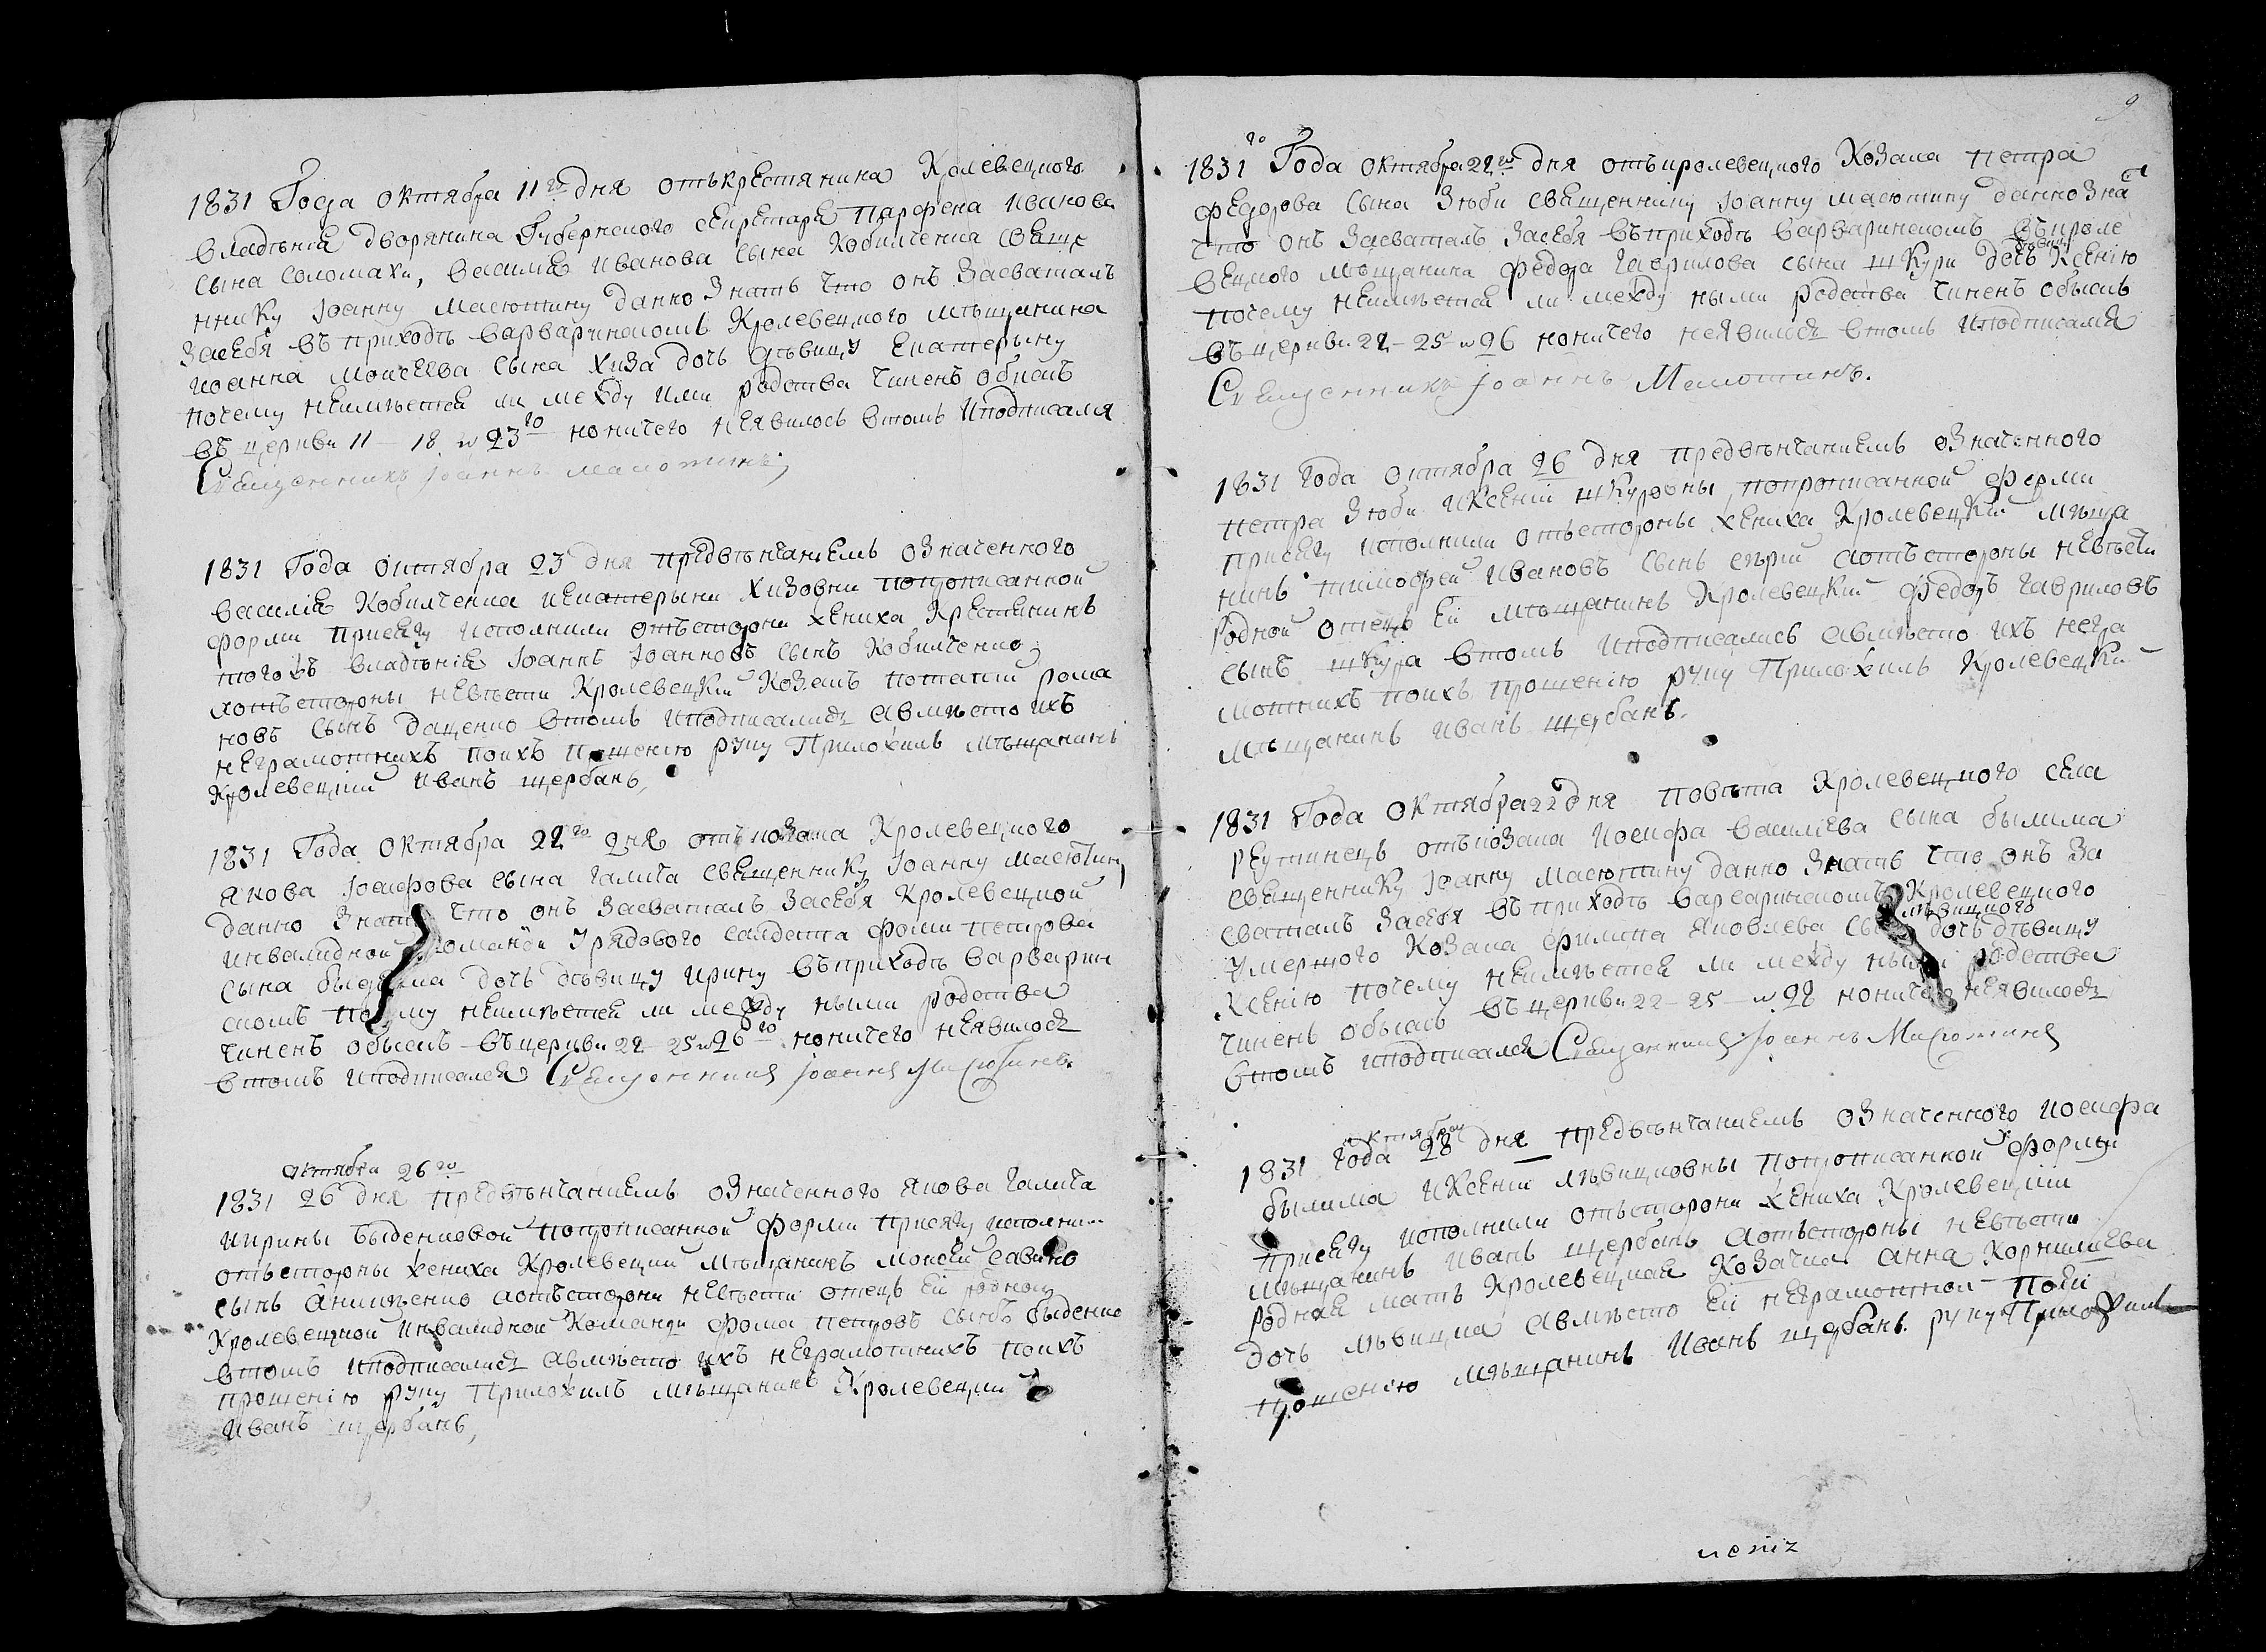 1831 Года октября 11го дня отъкрестянина Кролевецкого
владѣния дворянина Губернского секретаря Парфена Иванова
сына Соломахи, василия Иванова сына Кобилченка свяще
ннику Іоанну Масютину данно знать что онъ засваталъ
засебя въ приходѣ варваринскомъ Кролевецкого мѣщанина
иоанна моисеева сына Хиза дочь дѣвицу Екатерыну
почему неимѣется ли между ими родства чиненъ обискъ
въ церкви 11 – 18 и 23го ноничего неявилось втомъ Иподписался
Священникъ Іоаннъ Масютинъ

1831 Года октября 23 дня предвѣнчаниемъ означенного
василия Кобилченка иекатерыни Хизовни попрописанной
форми присягу исполнили отъстороны жениха крестянинъ
тогожъ владѣния Іоаннъ Іоанновъ сынъ Кобилченко,
аотъстороны невѣсти Кролевецкий Козакъ потапий рома
новъ сынъ даценко втомъ иподписалися авмѣсто ихъ
неграмотнихъ поихъ прошению руку Приложилъ мѣщанинъ
Кролевецкий иванъ щербань,

1831 Года октября 22го дня отъкозака Кролевецкого
якова Іосифова сына галича священнику Іоанну масютину
данно знать что онъ засваталъ засебя Кролевецкой
инвалидной команди Урядового салдата фоми петрова
сына быденка дочь дѣвицу ирину въприходѣ варварин
скомъ почему неимѣется ли между ными родства
чиненъ обыскъ въцеркви 22 25 и 26го ноничего неявилося
втомъ иподписался Священникъ Іоаннъ Масютинъ.

октября 26го
1831 26 дня предвѣнчаниемъ означенного якова галича
иирины быденковой попрописанной форми присягу исполни
отъстороны жениха Кролевецкий мѣщанинъ моисей савино
сынъ аотъстороны невѣсти отецъ ей родной
Кролевецкой инвалидной Команди фома петровъ сынъ быденко
втомъ иподписалися авмѣсто ихъ неграмотнихъ поихъ
прошению руку Приложилъ мѣщанинъ Кролевецкий
иванъ щербань,

9
1831го Года октября 22го дня отъкролевецкого Козака петра
федорова сына Зюби священнику Іоанну масютину данно зна
что онъ засваталъ засебя въприходѣ варваринскомъ въкроле
вецкого мѣщанина федора гаврилова сына шкури дочь дѣвицу Ксению
почему неимѣется ли между ными родства чиненъ обыскъ
въ церкви 22 – 25 и 26 ноничего неявилося втомъ иподписался
Священникъ Іоаннъ Масютинъ.

1831 года октября 26 дня предвѣнчаниемъ означенного
петра Зюби иксении шкуровны попрописанной форми
присягу исполнили отъстороны жениха Кролевецкий мѣща
нинъ тимофей ивановъ сынъ сѣрий аотъстороны невѣсти
родной отецъ ей мѣщанинъ Кролевецкий федоръ гавриловъ
сынъ шкура втомъ иподписались авмѣсто ихъ негра
мотнихъ поихъ прошению руку Приложилъ Кролевецкий
мѣщанинъ иванъ щербань.

1831 Года октября 22 дня повѣта Кролевецкого села
реутинецъ отъкозака иосифа василиева сына былима
священнику Іоанну масютину данно знать что онъ за
сваталъ засебя въприходѣ варваринскомъ Кролевецкого
умершого Козака филипа яковлева сына лѣвицкого дочь дѣвицу
Ксению почему неимѣется ли между ными родства
чиненъ обыскъ въцеркви 22 – 25 – и 28 ноничего неявилося
втомъ иподписался Священникъ Іоаннъ Масютинъ

1831 года октября 28 дня предвѣнчаниемъ означенного иосифа
былима иксении лѣвицковны попрописанной форми
присягу исполнили отъстороны жениха Кролевецкий
мѣщанинъ иванъ щербань аотъстороны невѣсти
родная мать Кролевецкая козачка анна Корнилиева
дочь лѣвицка авмѣсто ей неграмотной поей
прошению мѣщанинъ иванъ щербань руку Приложилъ